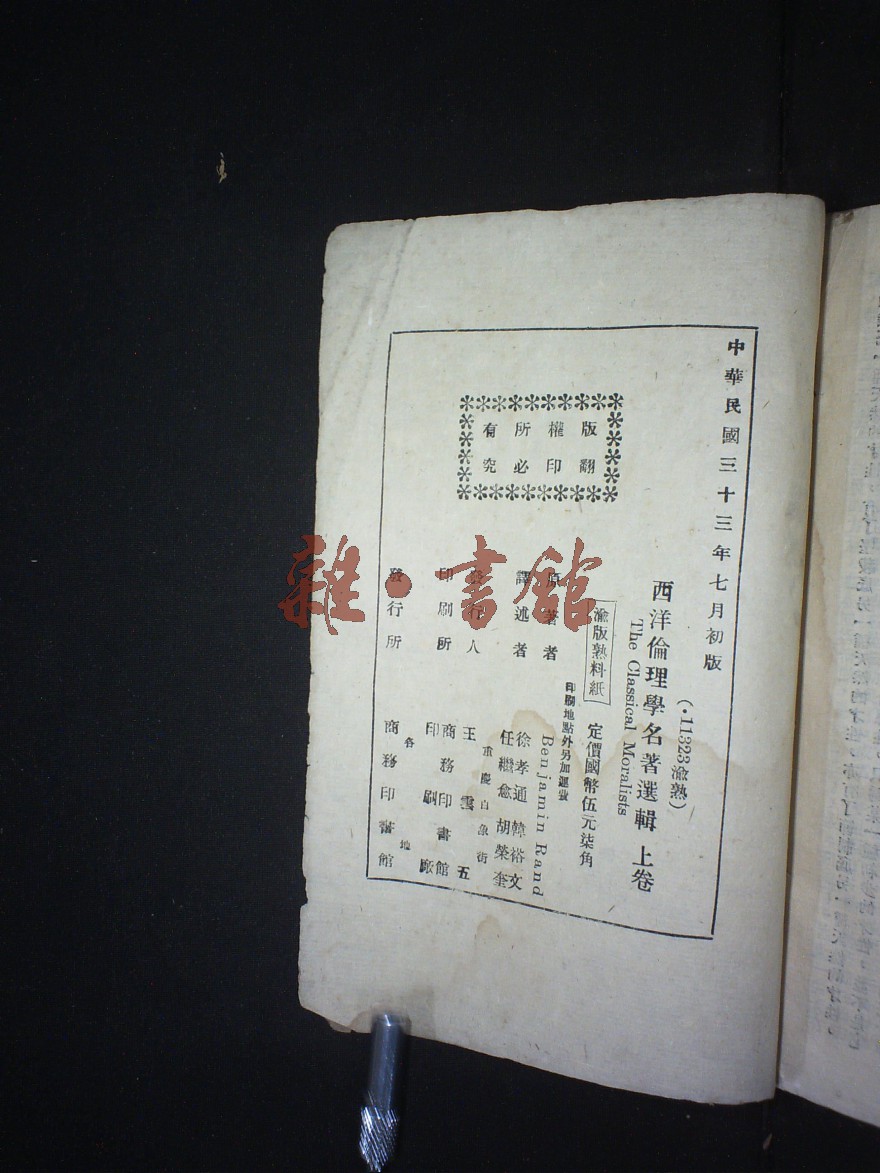 中華民國三十三年七月初版
(·11323渝熟)
西洋倫理學名著選輯 上卷
The Classical Moralists
渝版熟料紙
定價國幣伍元柒角
印刷地點外另加運費
版權所有
翻印必究
原著者 Benjamin Rand
譯述者 徐孝通 韓裕文
任繼愈 胡榮奎
重慶白象街
發行人 王雲五
印刷所 商務印書館
印刷廠
發行所 各地
商務印書館
雜·書館